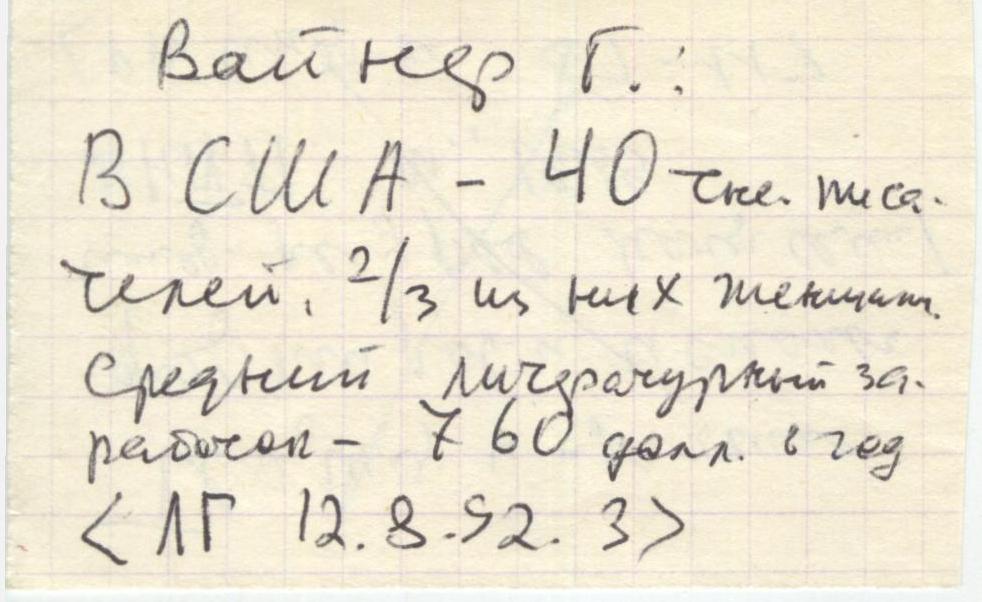 Вайнер Г.:
В США - 40 тыс. писа-
телей, 2/3 из них женщин.
Средний литературный за-
работок - 760 долл. в год
<ЛГ 12.8.92. 3>